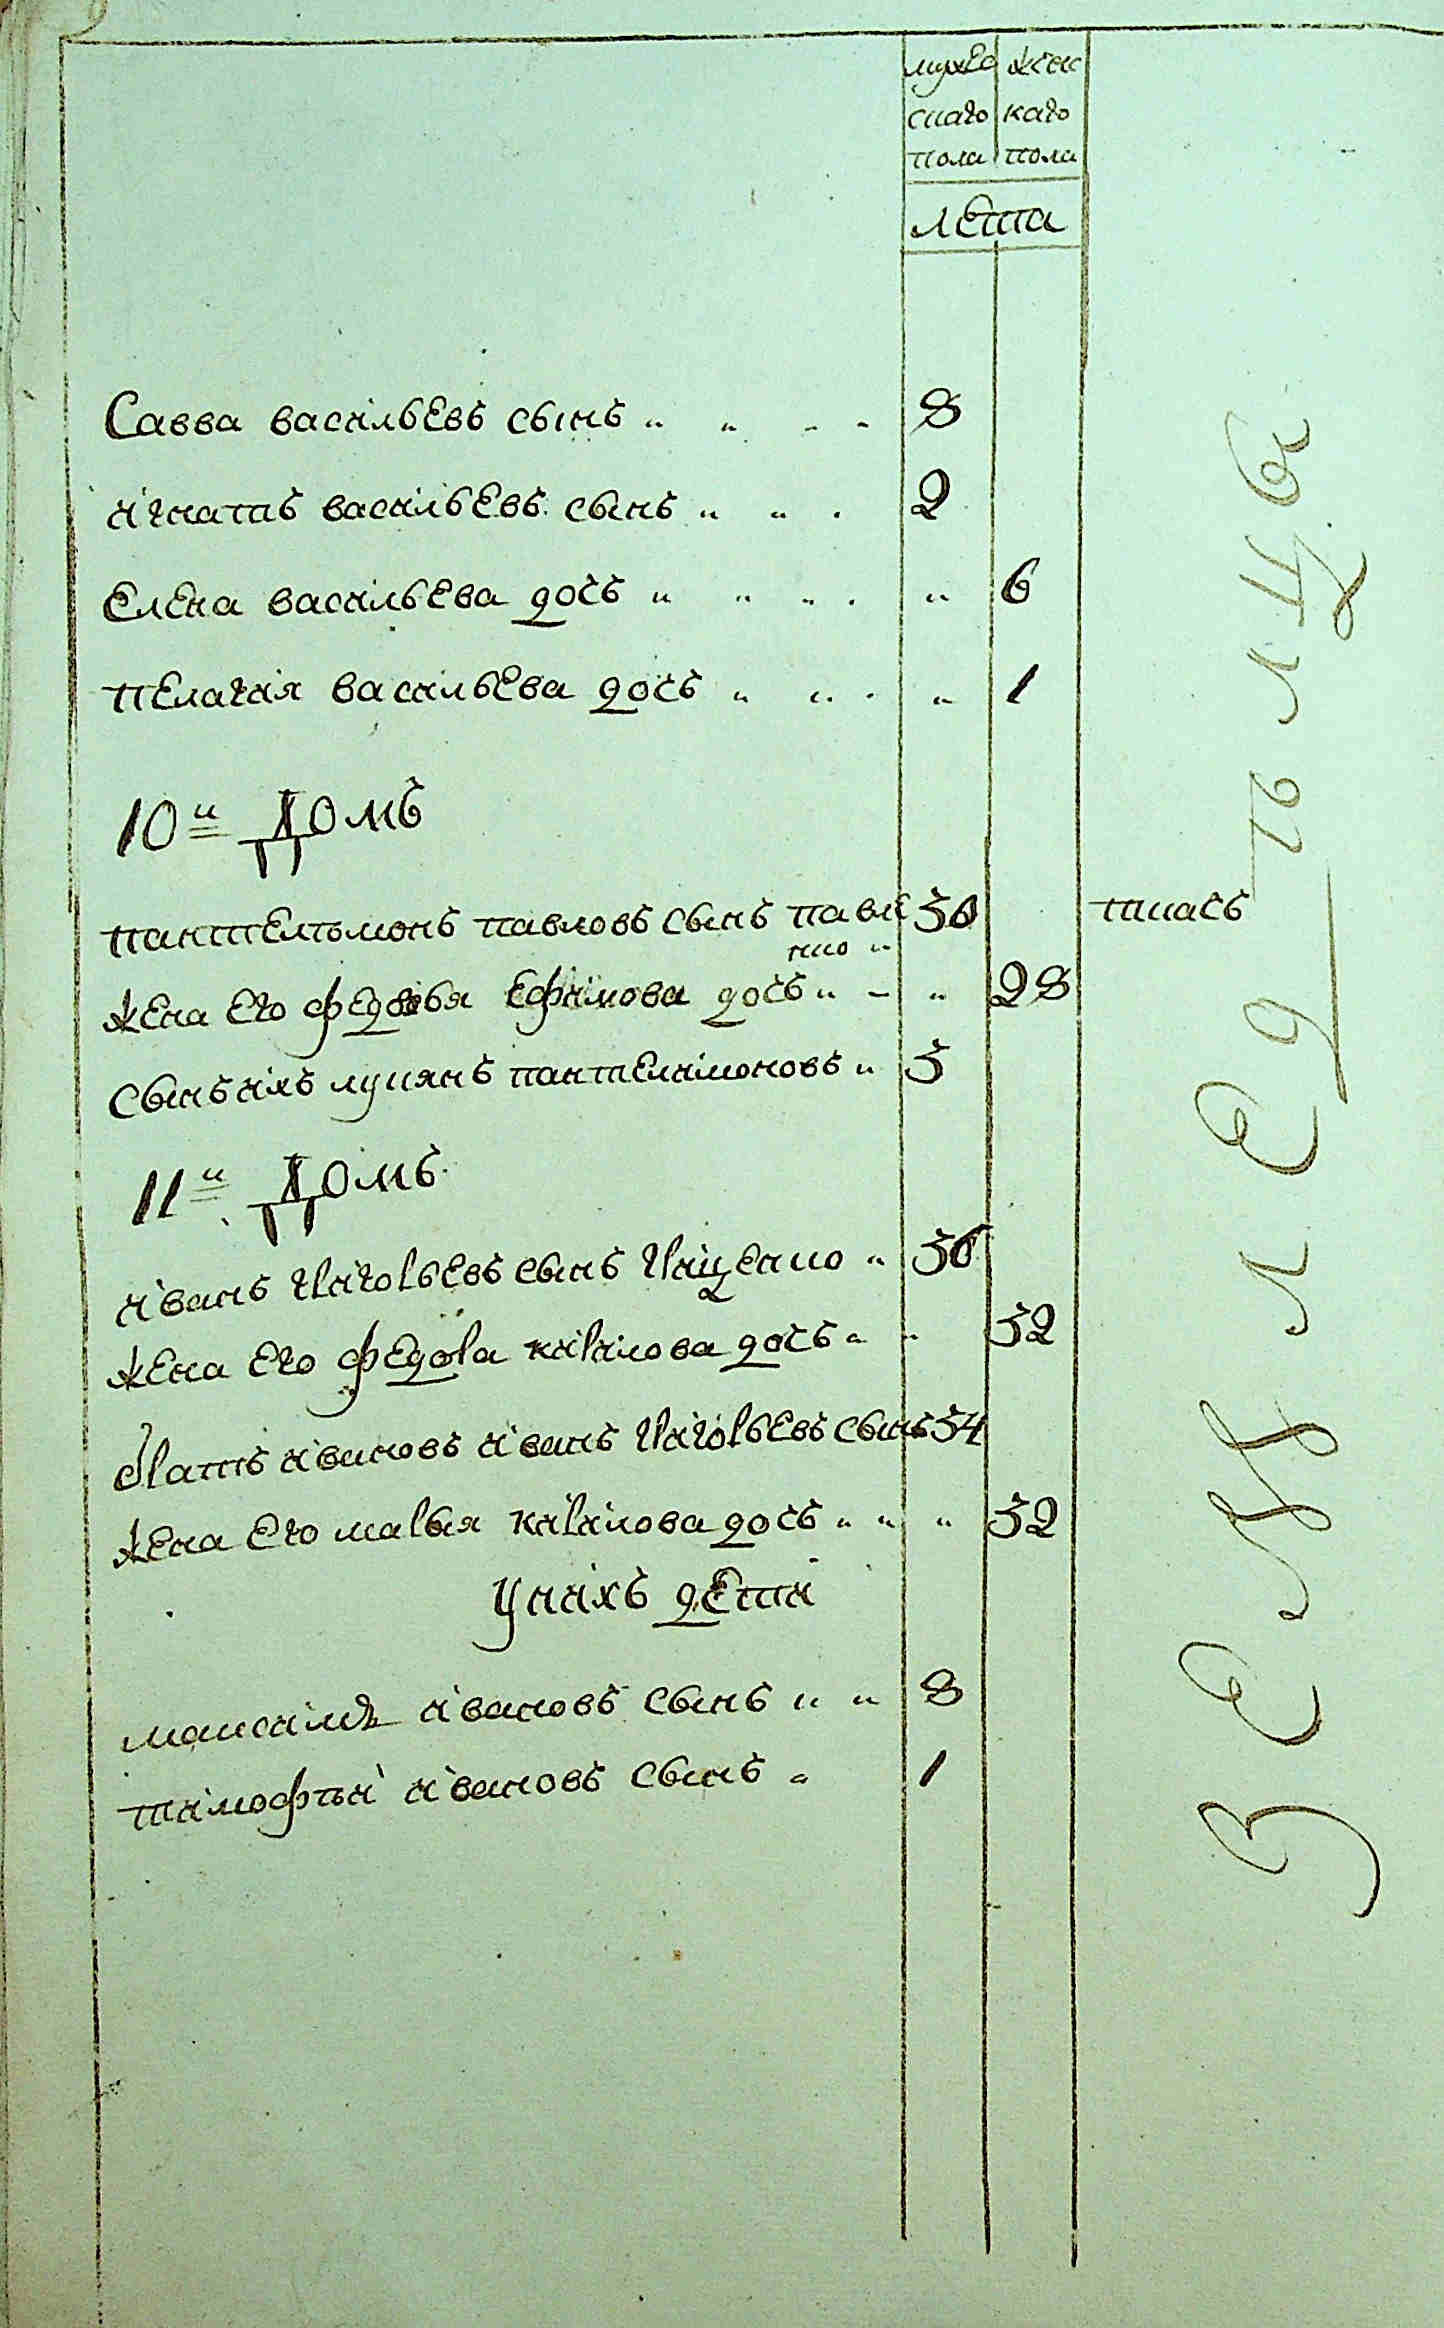 мужес жен
скаго каго
пола пола
лета
Савва васильевъ сынъ " " " " 8
игнатъ васильевъ сынъ " " " 2
Елена васильева дочъ " " " " " 6
пелагия васильева дочъ " " " " 1
10й Домъ
пантелѣмонъ павловъ сынъ павле 30 ткачъ
нко "
жена Его федосья Ефимова дочъ " " " 28
сынъ ихъ лукянъ пантелимоновъ " 3
11й Домъ
иванъ григорьевъ сынъ грищенко " 36
жена Его федора кирилова дочъ " " 32
братъ ивановъ иванъ григорьевъ сынъ 34
жена Его марья кирилова дочъ " " " 32
У нихъ дети
максимъ ивановъ сынъ " " 8
тимофѣй ивановъ сынъ " 1
земледѣлцы